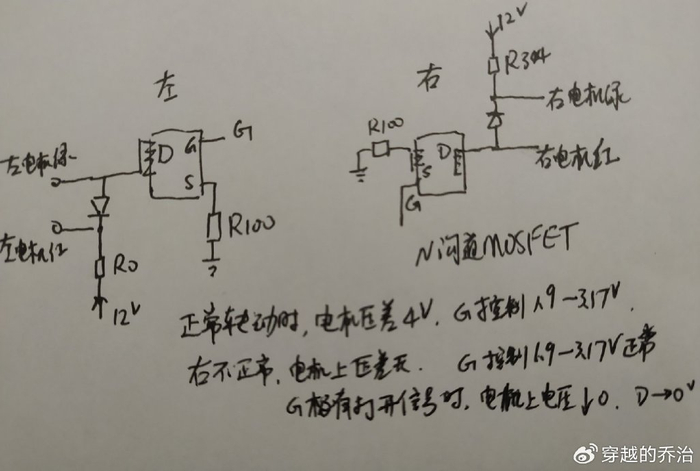 12V
左
右
R304
右电机绿
G
D
G
R100
D
左电机绿
S
S
右电机红
G
左电机红
R100
R0
N沟道MOSFET
12V
正常转动时,电机压差4V. G控制1.9-3.17V.
右不正常,电机上压差无. G控制1.9-3.17V正常
G极有打开信号时,电机上电压↓0. D→0V
@穿越的乔治